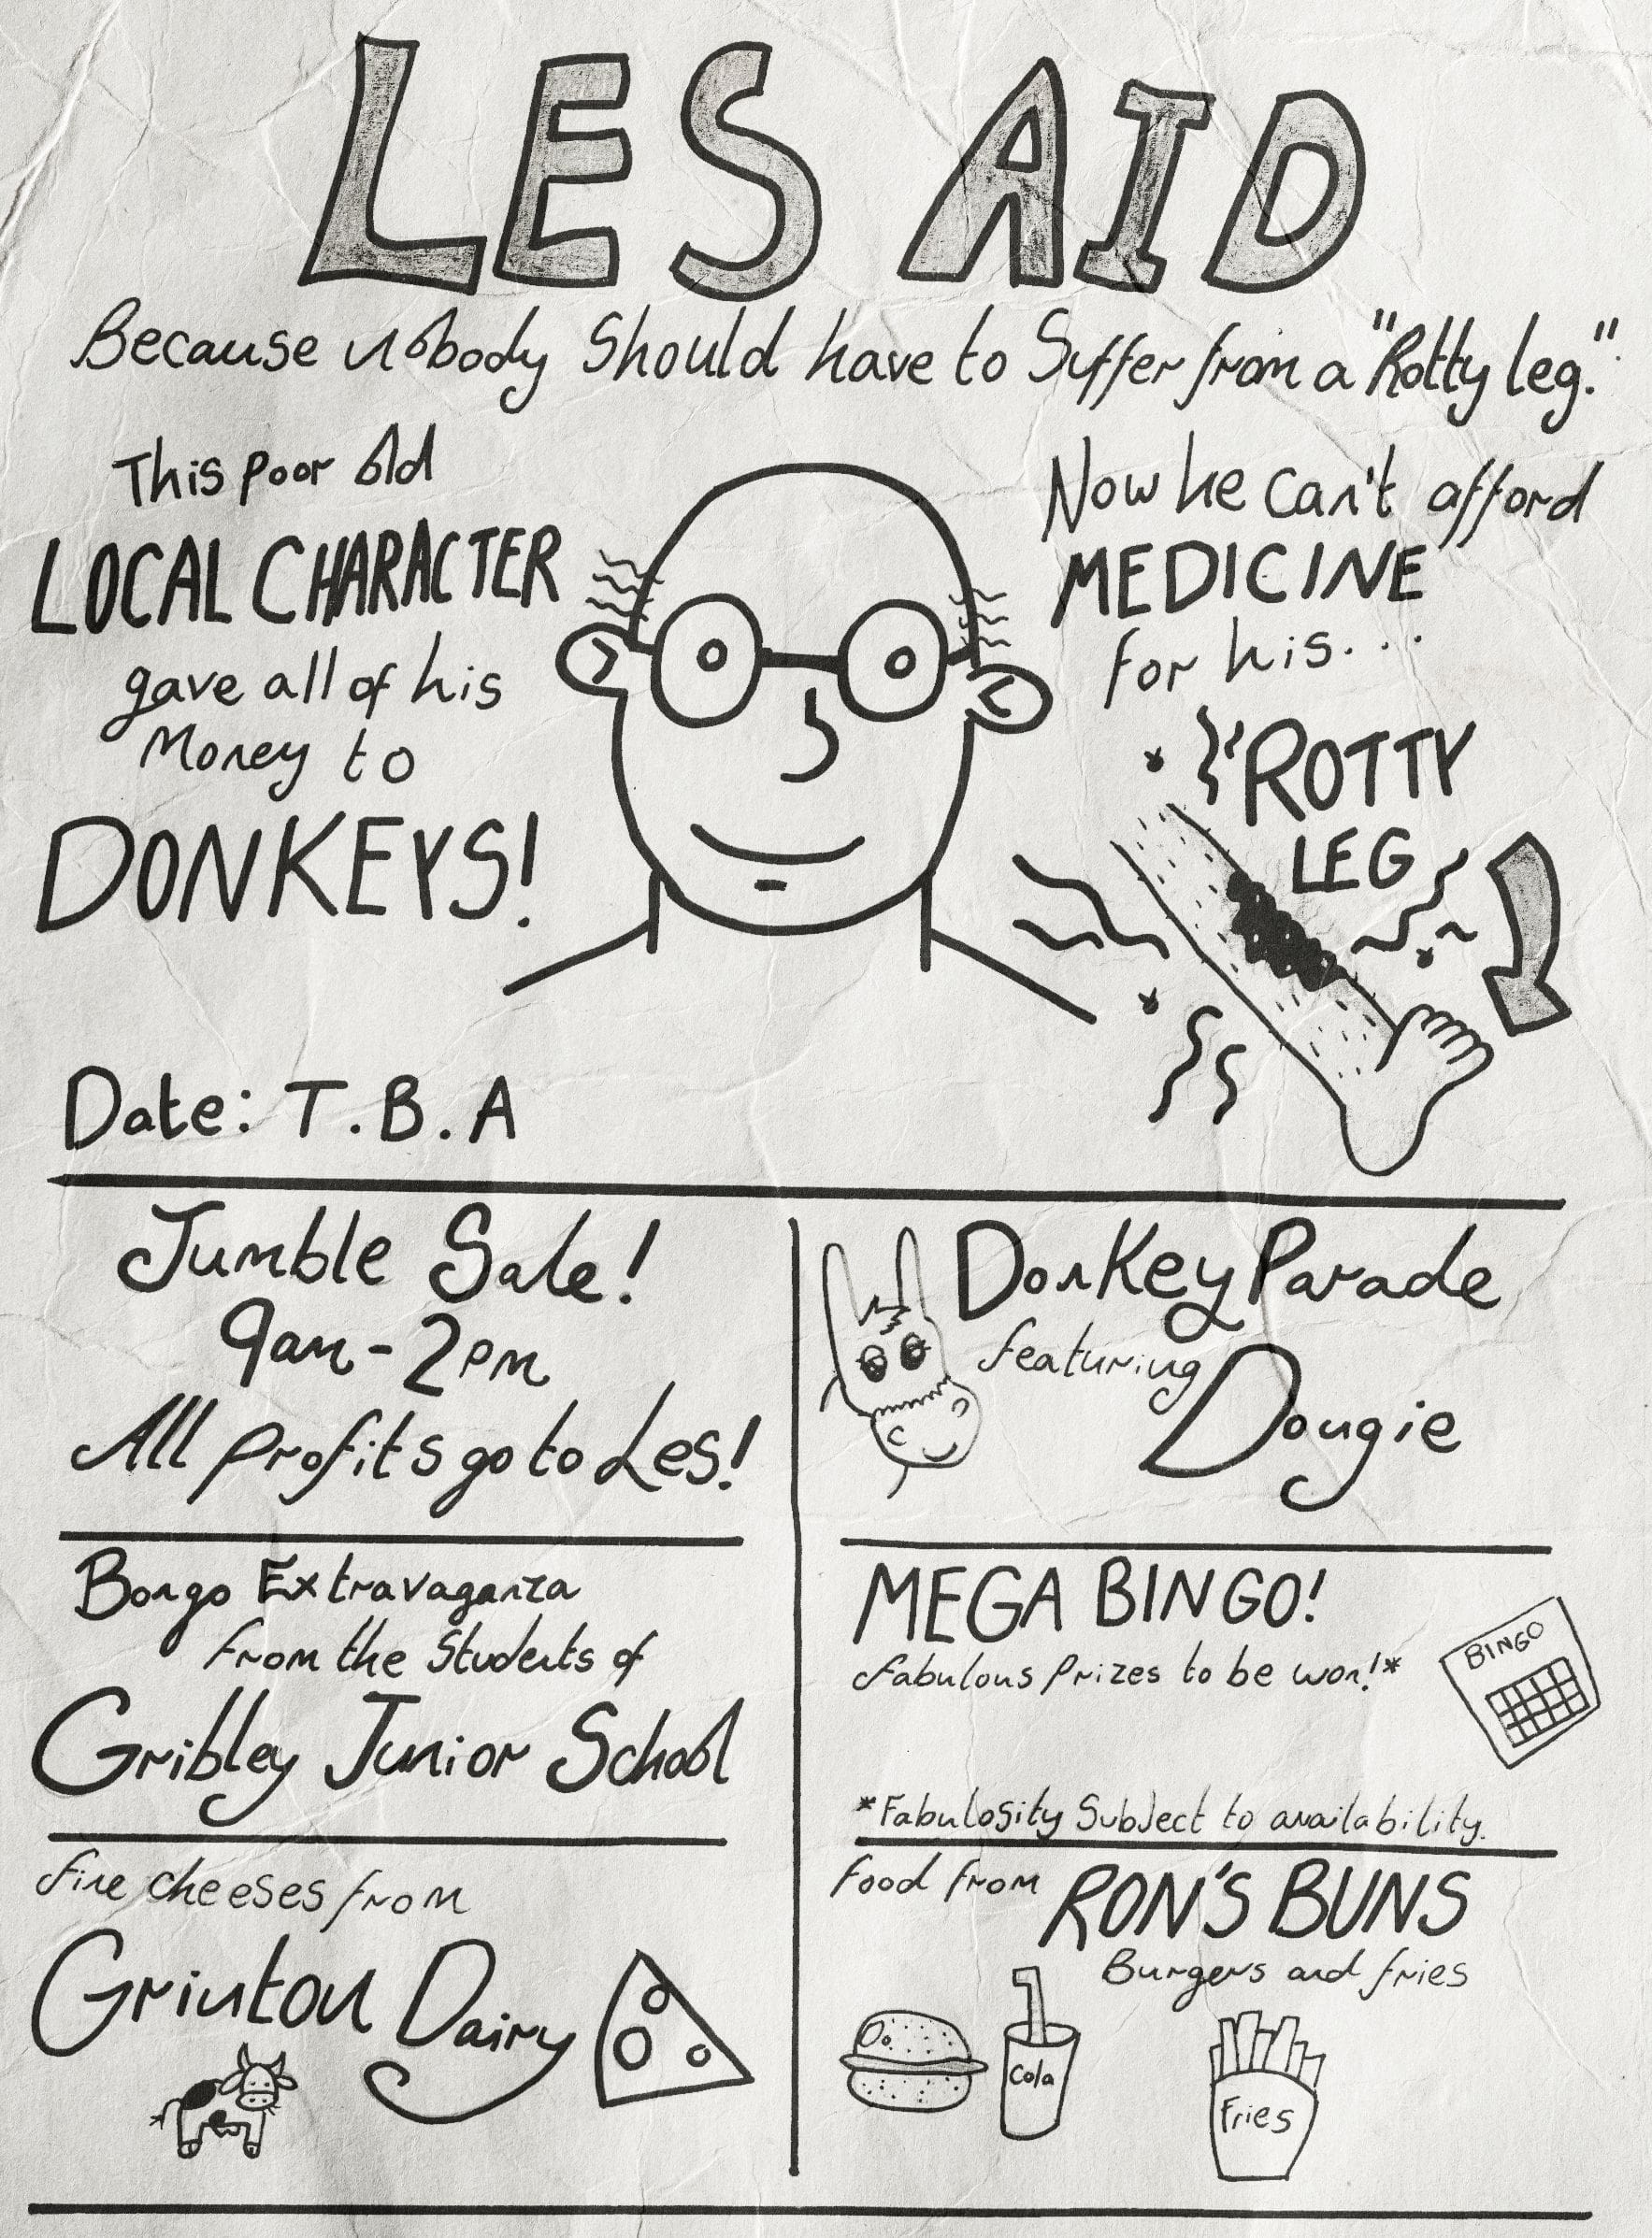 LES AID
Because nobody Should have to Suffer from a "Rotty leg."
This poor old
LOCAL CHARACTER
gave all of his
Money to
DONKEYS!
Now he can't afford
MEDICINE
for his...
ROTTY
LEG
Date: T.B.A
Jumble Sale!
9am - 2pm
All profits go to Les!
Donkey Parade
featuring
Dougie
Bongo Extravaganza
from the Students of
Gribley Junior School
MEGA BINGO!
fabulous Prizes to be won!*
BINGO
*Fabulosity Subject to availability.
fine cheeses from
Grinton Dairy
food from RON'S BUNS
Burgers and fries
Cola
Fries